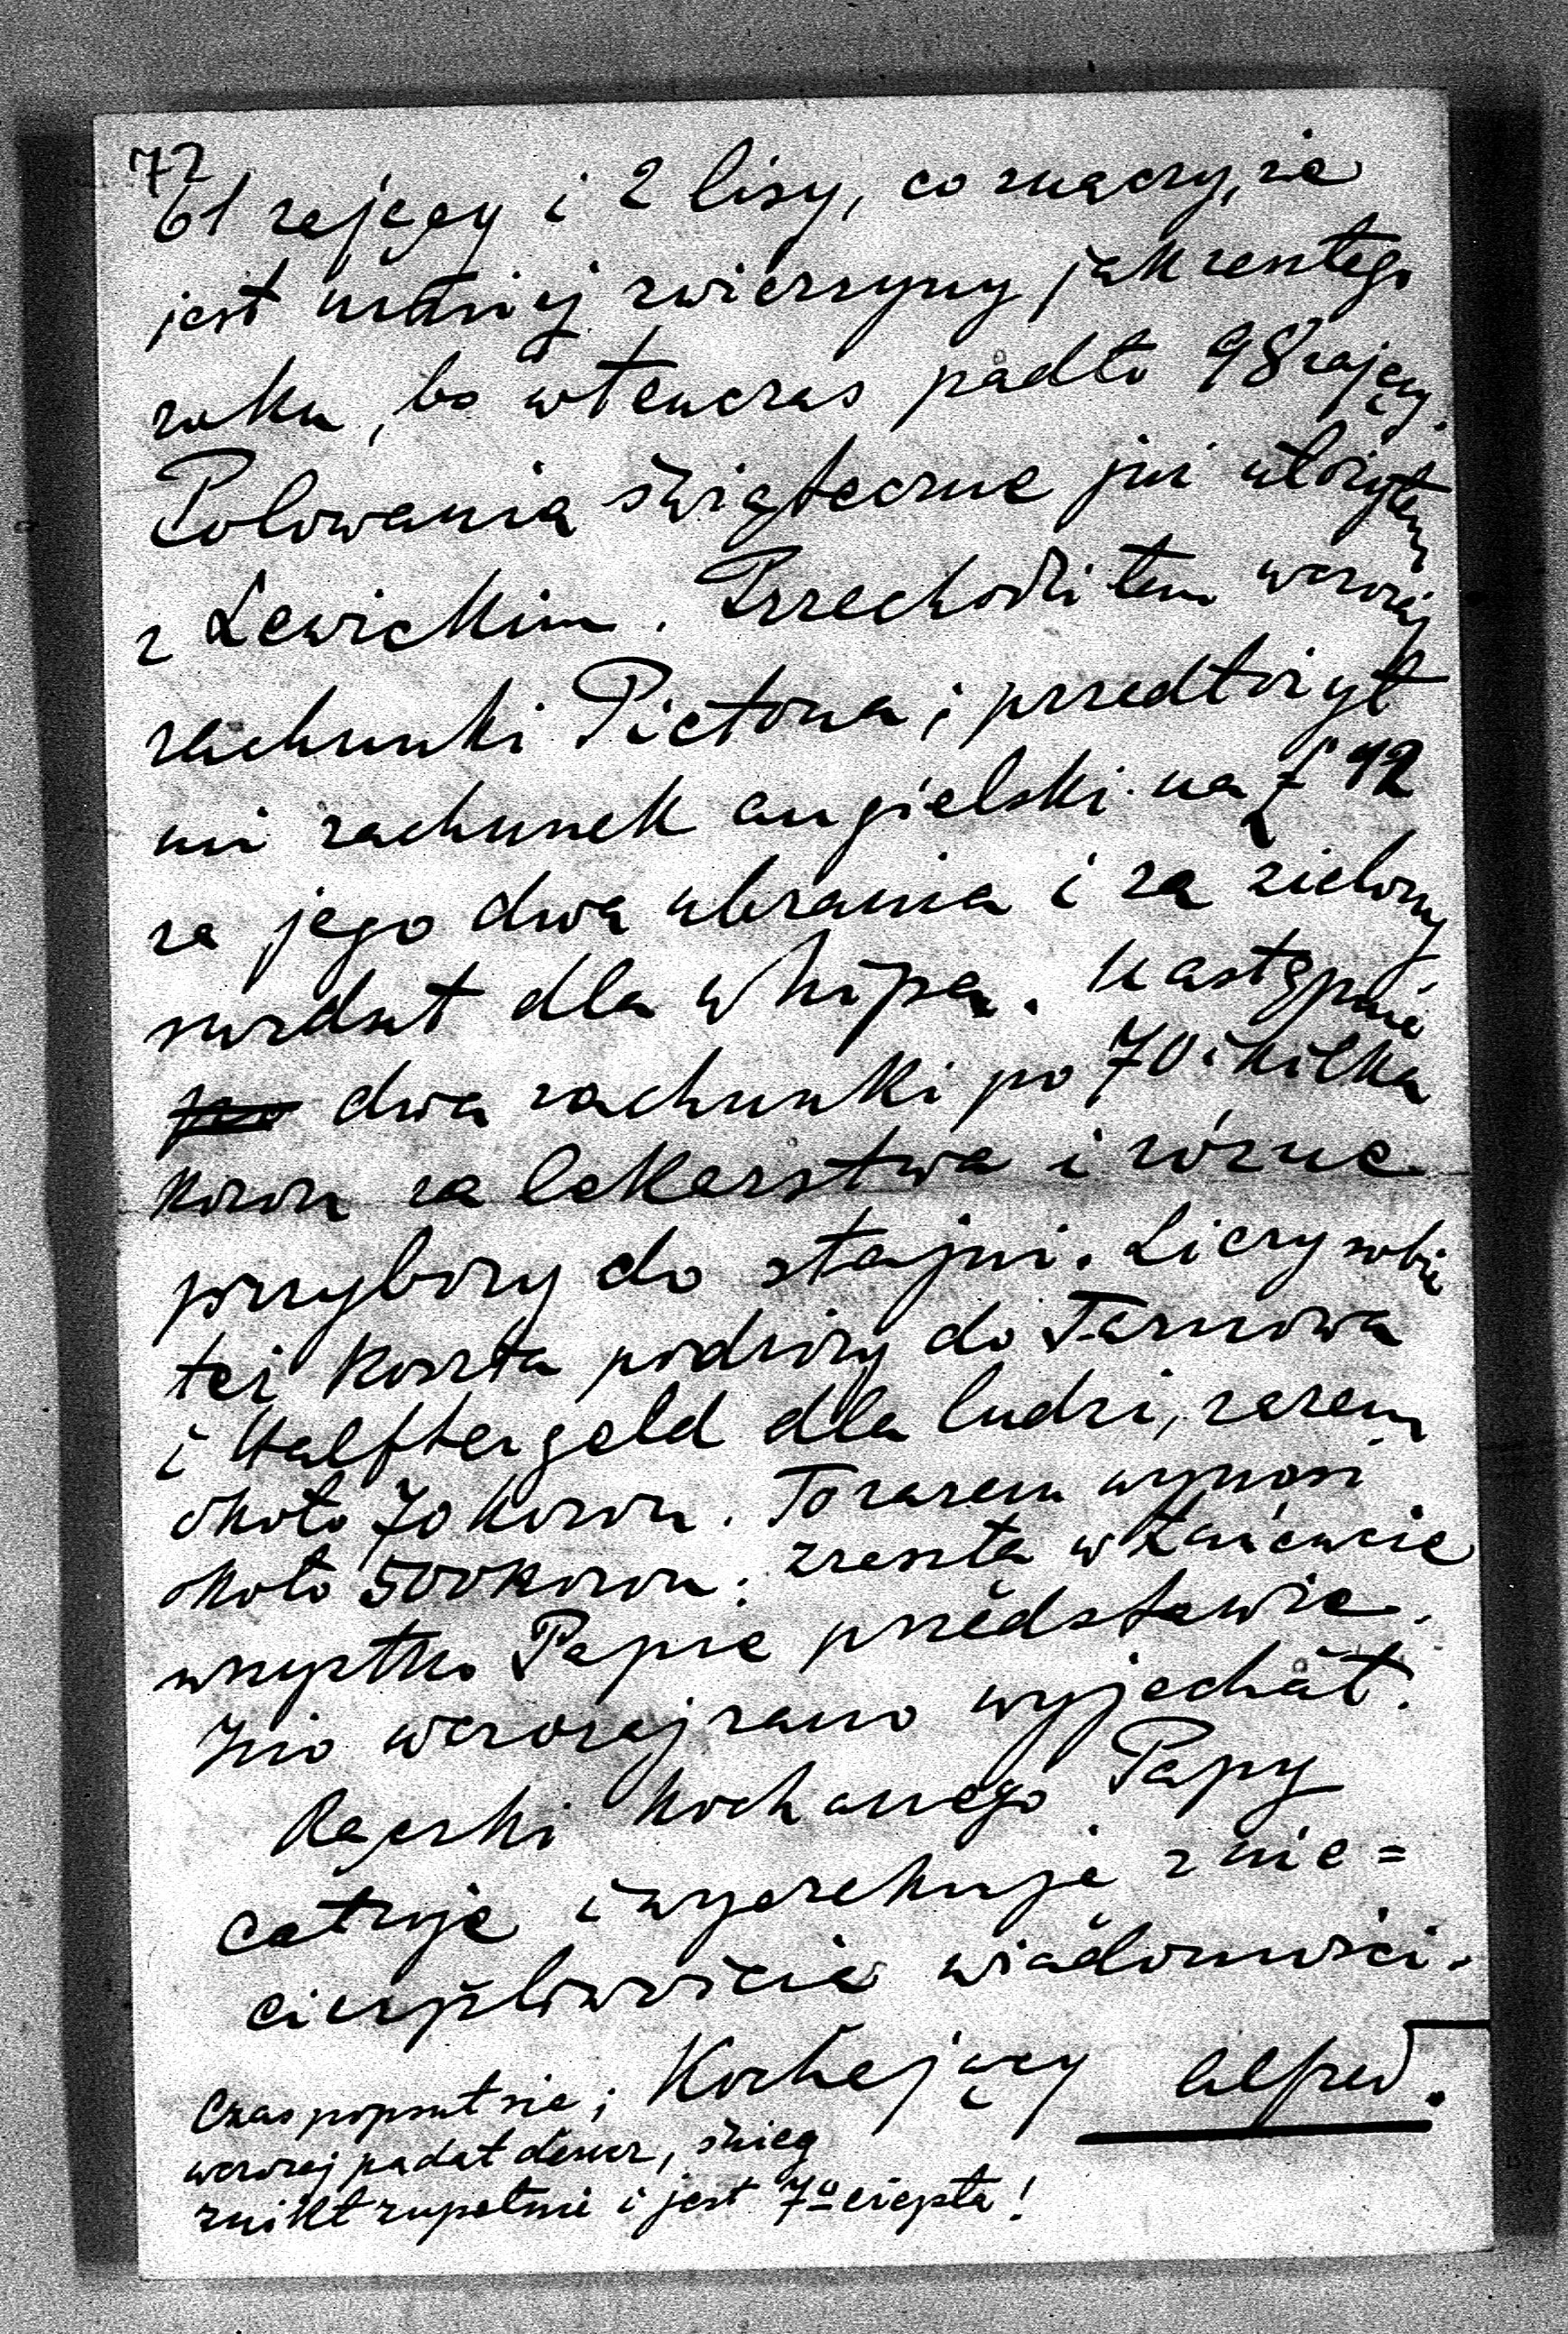 72
61 zajęcy i 2 lisy, co znaczy, że
jest mniej zwierzyny jak zeszłego
roku, bo wtenczas padło 98 zajęcy.
Polowania świąteczne już ułożyłem
z Lewickim. Przechodziłem wczoraj
rachunki Pictona; przedłożył
mi rachunek angielski na £ 12
za jego dwa ubrania i za zielony
surdut dla whipa. Następnie
dwa rachunki po 70 i kilka
koron za lekarstwa i różne
przybory do stajni. Liczy sobie
też koszta podróży do Tarnowa
i Halftergeld dla ludzi, razem
około 70 koron. To razem wynosi
około 500 koron. Zresztą w Łańcucie
wszystko Papie przedstawię.
Jzio wczoraj rano wyjechał.
Rączki kochanego Papy
całuję i wyczekuję z nie=
cierpliwością wiadomości.
Kochający Alfred.
Czas popsuł się;
wczoraj padał deszcz, śnieg
znikł zupełnie i jest 7º ciepła!